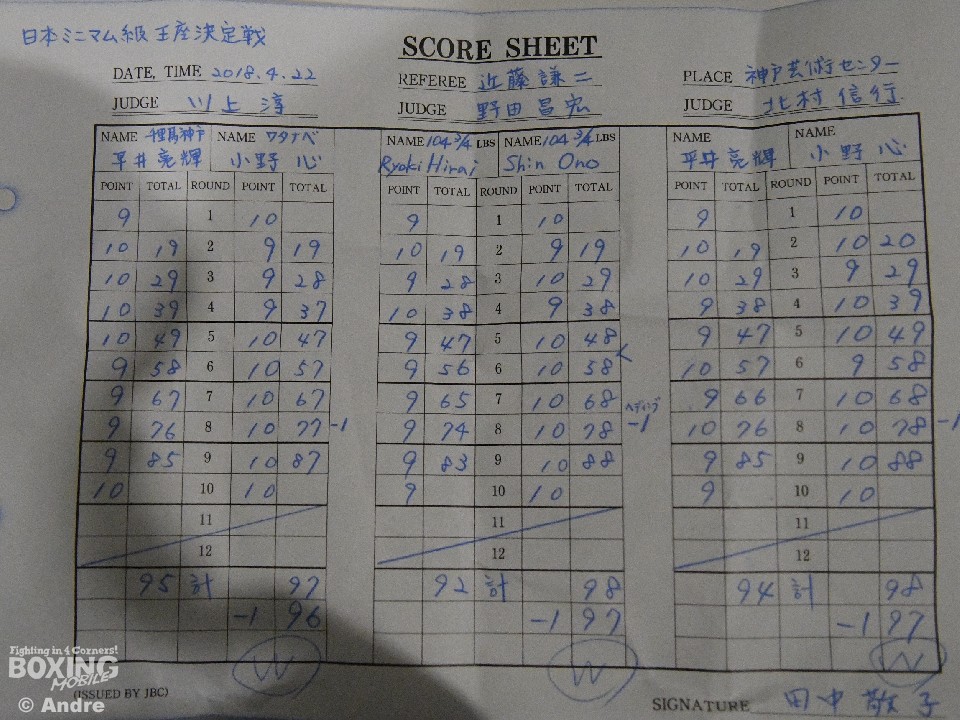 日本ミニマム級王座決定戦
SCORE SHEET
DATE, TIME 2018.4.22 REFEREE 近藤謙二 PLACE 神戸芸術センター
JUDGE 川上淳 JUDGE 野田昌宏 JUDGE 北村信行
NAME 千里馬神戸 NAME ワタナベ NAME 104 3/4 LBS NAME 104 3/4 LBS NAME NAME
平井亮輝 小野心 Ryoki Hirai Shin Ono 平井亮輝 小野心
POINT TOTAL ROUND POINT TOTAL POINT TOTAL ROUND POINT TOTAL POINT TOTAL ROUND POINT TOTAL
9 1 10 9 1 10 9 1 10
10 19 2 9 19 10 19 2 9 19 10 19 2 10 20
10 29 3 9 28 9 28 3 10 29 10 29 3 9 29
10 39 4 9 37 10 38 4 9 38 9 38 4 10 39
10 49 5 10 47 9 47 5 10 48 9 47 5 10 49
9 58 6 10 57 9 56 6 10 58 10 57 6 9 58
9 67 7 10 67 9 65 7 10 68 9 66 7 10 68
ヘディング
9 76 8 10 77 -1 9 74 8 10 78 -1 10 76 8 10 78 -1
9 85 9 10 87 9 83 9 10 88 9 85 9 10 88
10 10 10 9 10 10 9 10 10
11 11 11
12 12 12
95 計 97 92 計 98 94 計 98
-1 96 -1 97 -1 97
W W W
(ISSUED BY JBC) SIGNATURE 田中敬子
Fighting in 4 Corners!
BOXING
MOBILE
© Andre